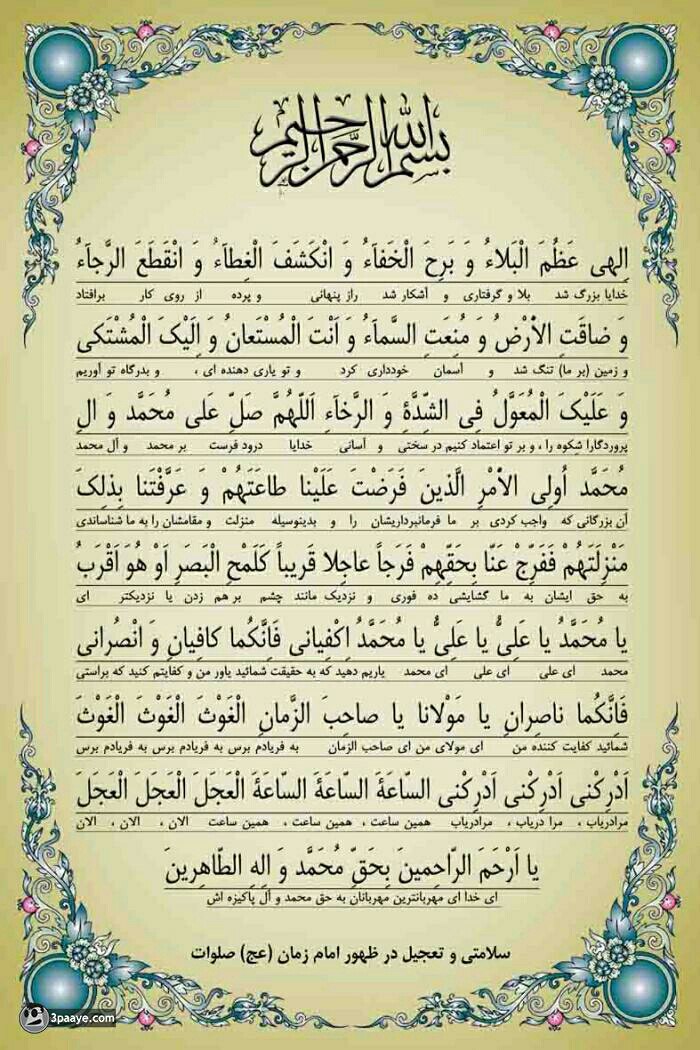 بسم الله الرحمن الرحیم
اِلهی عَظُمَ الْبَلاءُ وَ بَرِحَ الْخَفآءُ وَ انْکَشَفَ الْغِطآءُ وَ انْقَطَعَ الرَّجآءُ
خدایا بزرگ شد بلا و گرفتاری و آشکار شد راز پنهانی و پرده از روی کار برافتاد
وَ ضاقَتِ الاَْرْضُ وَ مُنِعَتِ السَّمآءُ وَ اَنْتَ الْمُسْتَعانُ وَ اِلَیْکَ الْمُشْتَکی
و زمین (بر ما) تنگ شد و آسمان خودداری کرد و تو یاری دهنده ای ، و بدرگاه تو آوریم
وَ عَلَیْکَ الْمُعَوَّلُ فِی الشِّدَّةِ وَ الرَّخآءِ اَللّهُمَّ صَلِّ عَلی مُحَمَّد وَ الِ
پروردگارا شکوه را ، و بر تو اعتماد کنیم در سختی و آسانی خدایا درود فرست بر محمد و آل محمد
مُحَمَّد اُولِی الاَْمْرِ الَّذینَ فَرَضْتَ عَلَیْنا طاعَتَهُمْ وَ عَرَّفْتَنا بِذلِکَ
آن بزرگانی که واجب کردی بر ما فرمانبرداریشان را و بدینوسیله منزلت و مقامشان را به ما شناساندی
مَنْزِلَتَهُمْ فَفَرِّجْ عَنّا بِحَقِّهِمْ فَرَجاً عاجِلا قَریباً کَلَمْحِ الْبَصَرِ اَوْ هُوَ اَقْرَبُ
به حق ایشان به ما گشایشی ده فوری و نزدیک مانند چشم بر هم زدن یا نزدیکتر ای
یا مُحَمَّدُ یا عَلِیُّ یا عَلِیُّ یا مُحَمَّدُ اِکْفِیانی فَاِنَّکُما کافِیانِ وَ انْصُرانی
محمد ای علی ای علی ای محمد یاریم دهید که به حقیقت شمائید یاور من و کفایتم کنید که براستی
فَاِنَّکُما ناصِرانِ یا مَوْلانا یا صاحِبَ الزَّمانِ الْغَوْثَ الْغَوْثَ الْغَوْثَ
شمائید کفایت کننده من ای مولای من ای صاحب الزمان به فریادم برس به فریادم برس به فریادم برس
اَدْرِکْنی اَدْرِکْنی اَدْرِکْنی السّاعَةَ السّاعَةَ السّاعَةَ الْعَجَلَ الْعَجَلَ الْعَجَلَ
مرادریاب ، مرا دریاب ، مرادریاب همین ساعت ، همین ساعت ، همین ساعت الان ، الان ، الان
یا اَرْحَمَ الرّاحِمینَ بِحَقِّ مُحَمَّد وَ الِهِ الطّاهِرینَ
ای خدا ای مهربانترین مهربانان به حق محمد و آل پاکیزه اش
سلامتی و تعجیل در ظهور امام زمان (عج) صلوات
3paaye.com